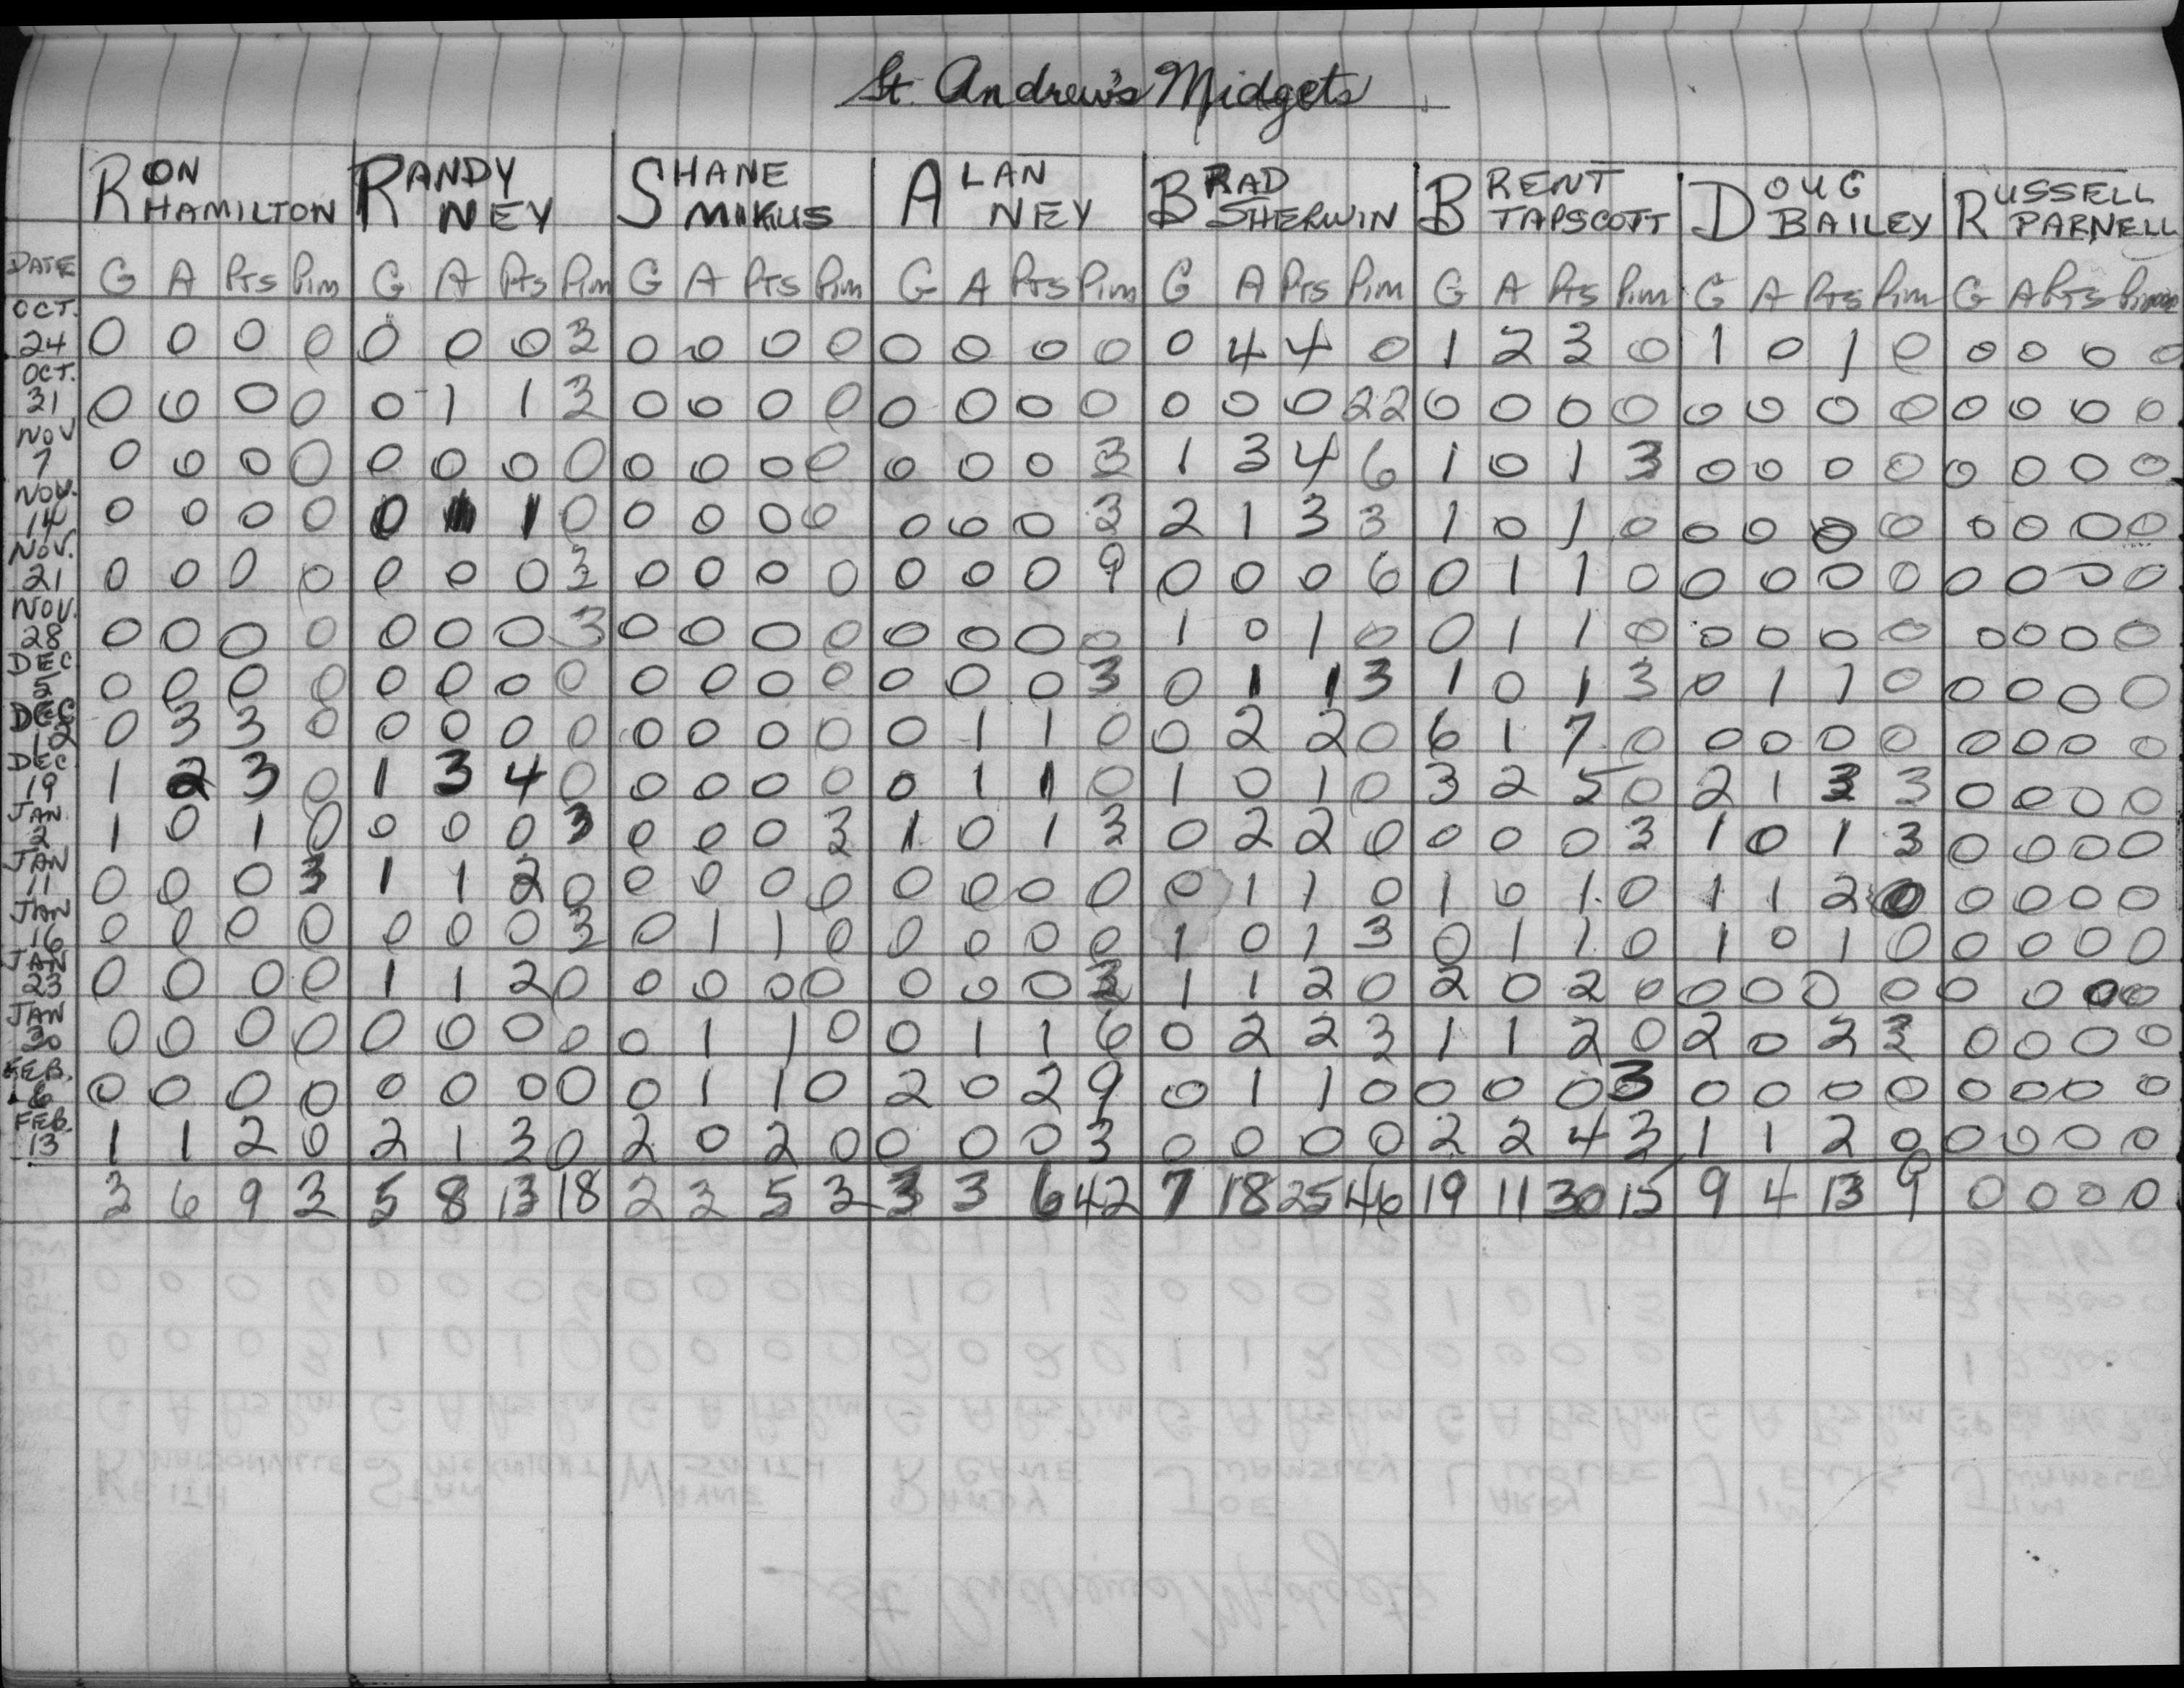 St. Andrew's Midgets
RON HAMILTON RANDY NEY SHANE MIKUS ALAN NEY BRAD SHERWIN BRENT TAPSCOTT DOUG BAILEY RUSSELL PARNELL
DATE G A Pts Pim G A Pts Pim G A Pts Pim G A Pts Pim G A Pts Pim G A Pts Pim G A Pts Pim G A Pts Pim
OCT. 24 0 0 0 0 0 0 0 3 0 0 0 0 0 0 0 0 0 4 4 0 1 2 3 0 1 0 1 0 0 0 0 0
OCT. 31 0 0 0 0 0 1 1 3 0 0 0 0 0 0 0 0 0 0 0 22 0 0 0 0 0 0 0 0 0 0 0 0
NOV 7 0 0 0 0 0 0 0 0 0 0 0 0 0 0 0 3 1 3 4 6 1 0 1 3 0 0 0 0 0 0 0 0
NOV. 14 0 0 0 0 0 1 1 0 0 0 0 0 0 0 0 3 2 1 3 3 1 0 1 0 0 0 0 0 0 0 0 0
NOV. 21 0 0 0 0 0 0 0 3 0 0 0 0 0 0 0 9 0 0 0 6 0 1 1 0 0 0 0 0 0 0 0 0
NOV. 28 0 0 0 0 0 0 0 3 0 0 0 0 0 0 0 0 1 0 1 0 0 1 1 0 0 0 0 0 0 0 0 0
DEC 5 0 0 0 0 0 0 0 0 0 0 0 0 0 0 0 3 0 1 1 3 1 0 1 3 0 1 1 0 0 0 0 0
DEC 12 0 3 3 0 0 0 0 0 0 0 0 0 0 1 1 0 0 2 2 0 6 1 7 0 0 0 0 0 0 0 0 0
DEC 19 1 2 3 0 1 3 4 0 0 0 0 0 0 1 1 0 1 0 1 0 3 2 5 0 2 1 3 3 0 0 0 0
JAN 2 1 0 1 0 0 0 0 3 0 0 0 3 1 0 1 3 0 2 2 0 0 0 0 3 1 0 1 3 0 0 0 0
JAN 11 0 0 0 3 1 1 2 0 0 0 0 0 0 0 0 0 0 1 1 0 1 0 1 0 1 1 2 0 0 0 0 0
JAN 16 0 0 0 0 0 0 0 3 0 1 1 0 0 0 0 0 1 0 1 3 0 1 1 0 1 0 1 0 0 0 0 0
JAN 23 0 0 0 0 1 1 2 0 0 0 0 0 0 0 0 3 1 1 2 0 2 0 2 0 0 0 0 0 0 0 0 0
JAN 30 0 0 0 0 0 0 0 0 0 1 1 0 0 1 1 6 0 2 2 3 1 1 2 0 2 0 2 3 0 0 0 0
FEB. 6 0 0 0 0 0 0 0 0 0 1 1 0 2 0 2 9 0 1 1 0 0 0 0 3 0 0 0 0 0 0 0 0
FEB. 13 1 1 2 0 2 1 3 0 2 0 2 0 0 0 0 3 0 0 0 0 2 2 4 3 1 1 2 0 0 0 0 0
3 6 9 3 5 8 13 18 2 3 5 3 3 3 6 42 7 18 25 46 19 11 30 15 9 4 13 9 0 0 0 0